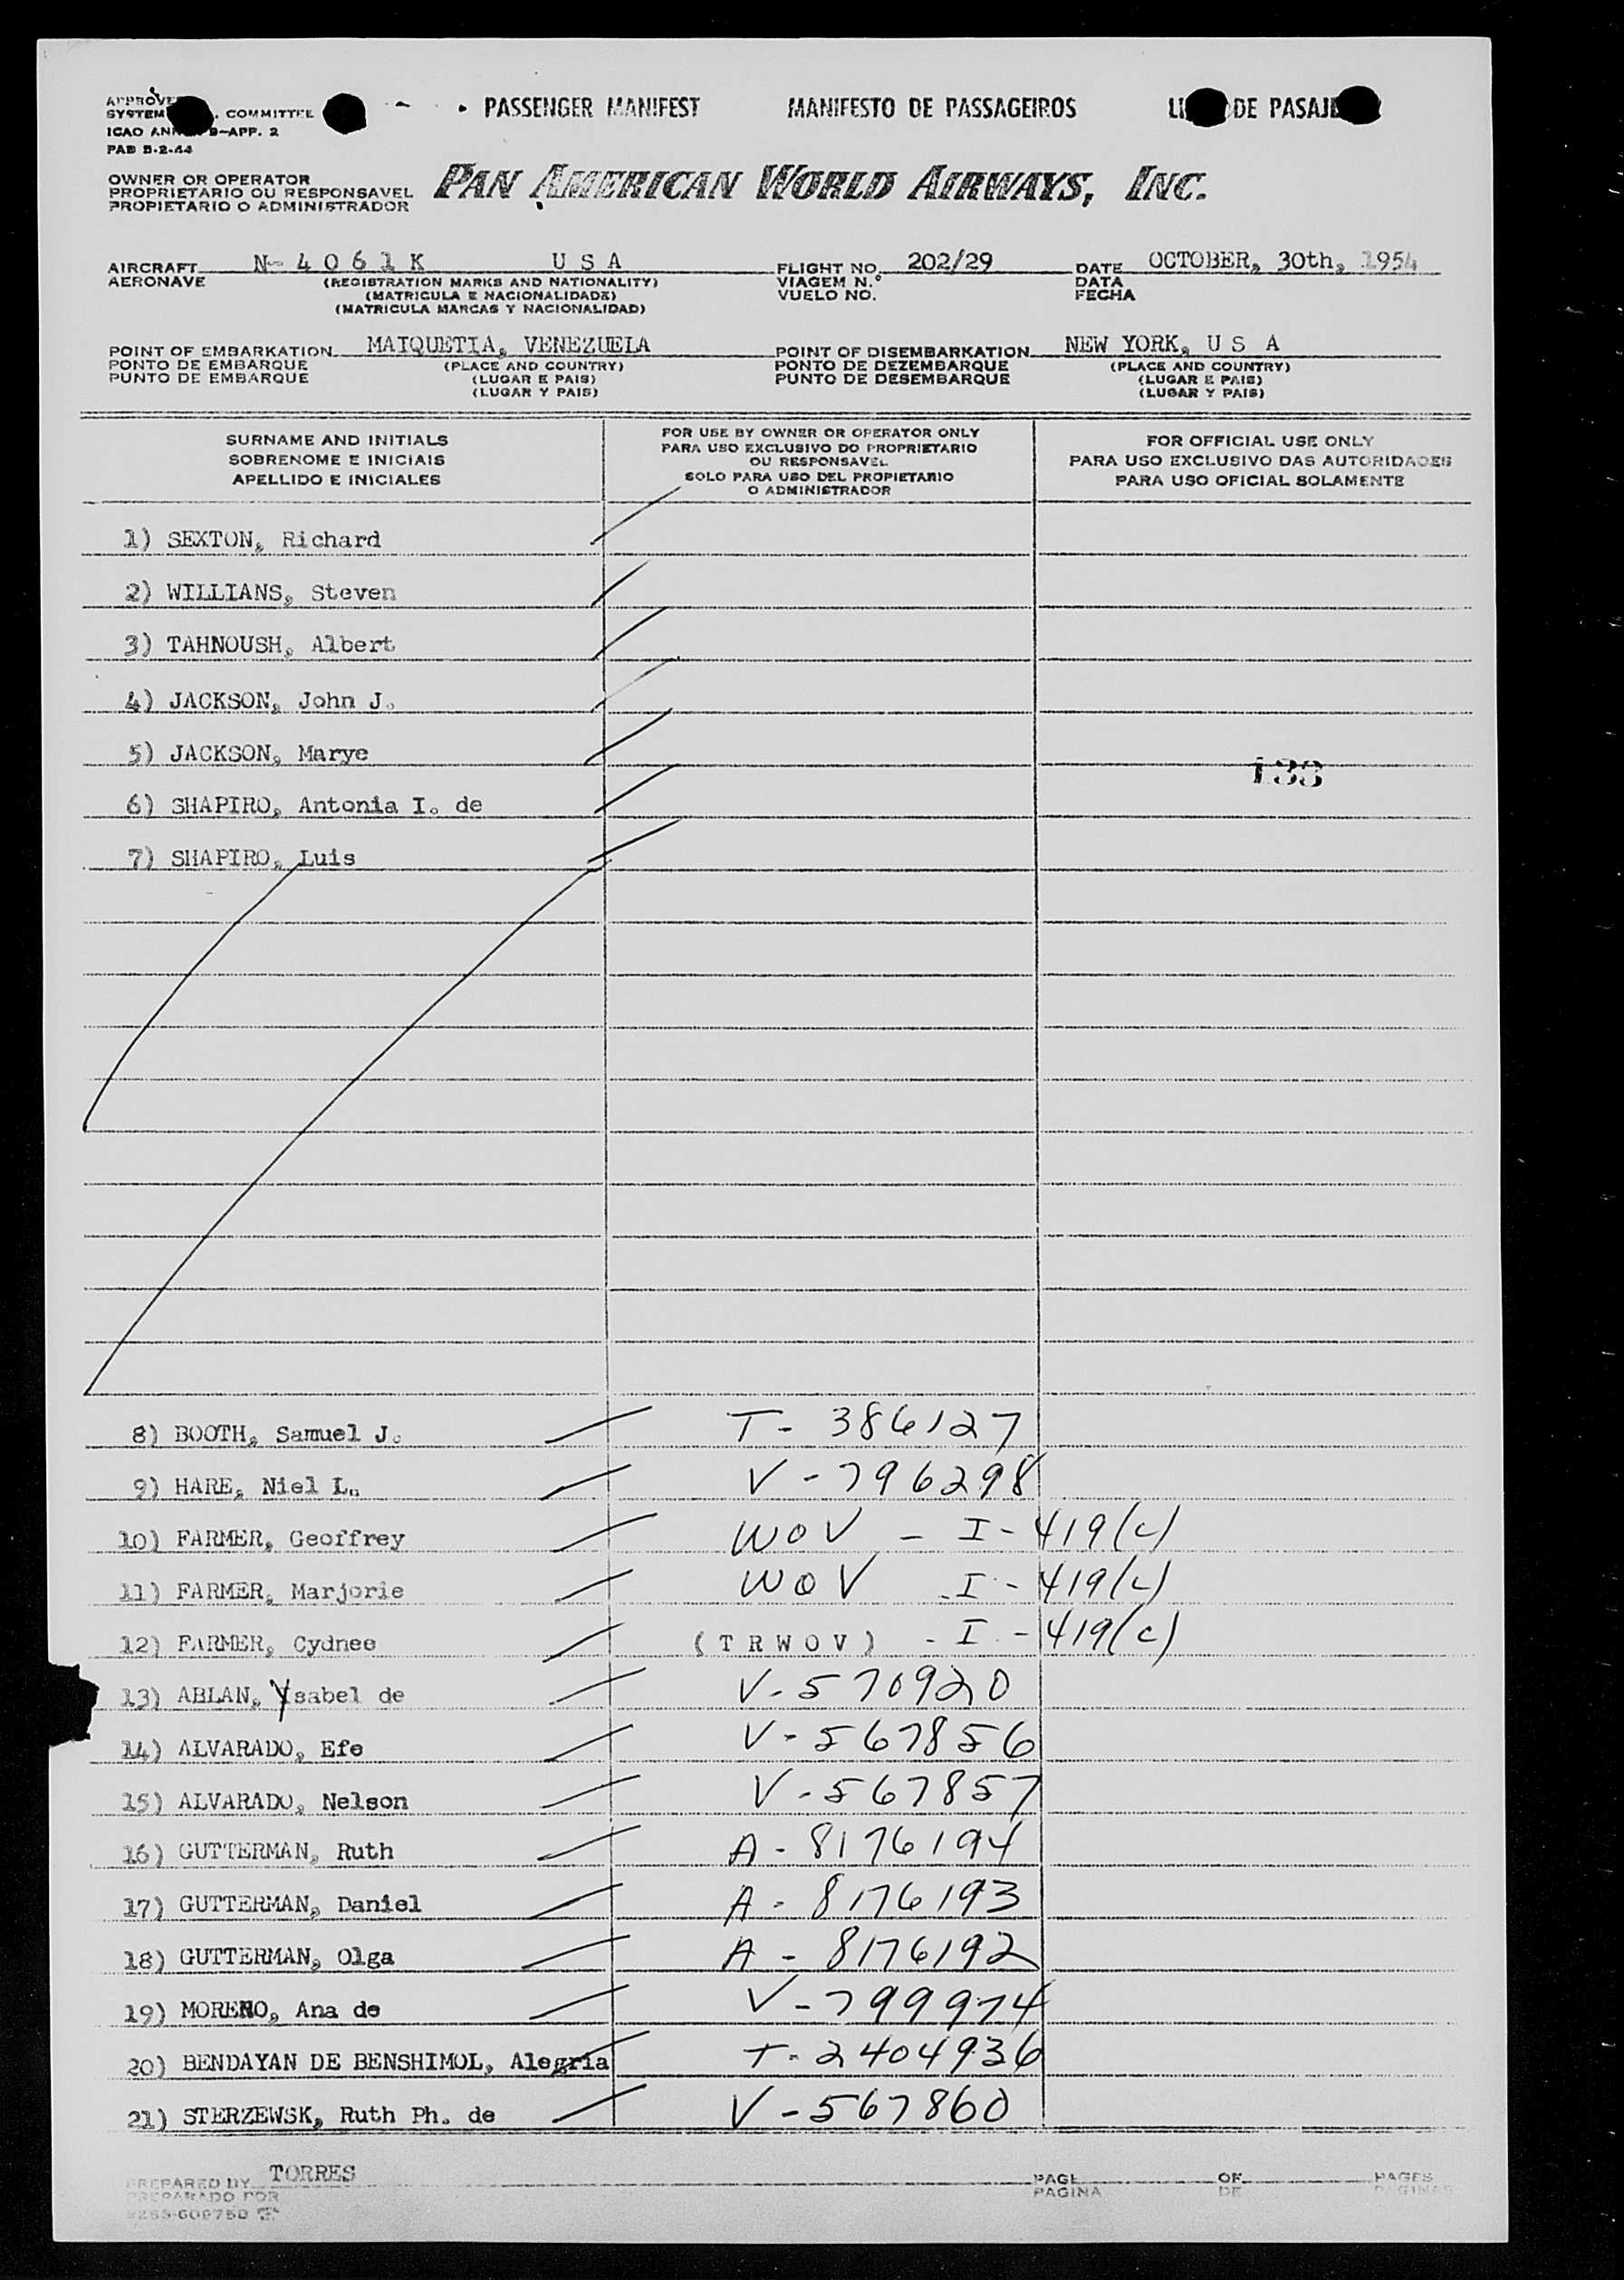 PASSENGER MANIFEST MANIFESTO DE PASSAGEIROS DE
COMMITTEE
ICAO
PAB B-2-44
OWNER OR OPERATOR
PROPRIETARIO OU RESPONSAVEL
PROPIETARIO O ADMINISTRADOR
PAN AMERICAN WORLD AIRWAYS, INC.
AIRCRAFT N-4061K USA FLIGHT NO. 202/29 DATE OCTOBER, 30th, 1954
AERONAVE (REGISTRATION MARKS AND NATIONALITY) VIAGEM N.º DATA
(MATRICULA E NACIONALIDADE) VUELO NO. FECHA
(MATRICULA MARCAS Y NACIONALIDAD)
POINT OF EMBARKATION MAIQUETIA, VENEZUELA POINT OF DISEMBARKATION NEW YORK, U S A
PONTO DE EMBARQUE (PLACE AND COUNTRY) PONTO DE DEZEMBARQUE (PLACE AND COUNTRY)
PUNTO DE EMBARQUE (LUGAR E PAIS) PUNTO DE DESEMBARQUE (LUGAR E PAIS)
(LUGAR Y PAIS) (LUGAR Y PAIS)
SURNAME AND INITIALS
SOBRENOME E INICIAIS
APELLIDO E INICIALES
FOR USE BY OWNER OR OPERATOR ONLY
PARA USO EXCLUSIVO DO PROPRIETARIO
OU RESPONSAVEL
SOLO PARA USO DEL PROPIETARIO
O ADMINISTRADOR
FOR OFFICIAL USE ONLY
PARA USO EXCLUSIVO DAS AUTORIDADES
PARA USO OFICIAL SOLAMENTE
1) SEXTON, Richard
2) WILLIANS, Steven
3) TAHNOUSH, Albert
4) JACKSON, John J.
5) JACKSON, Marye
133
6) SHAPIRO, Antonia I. de
7) SHAPIRO, Luis
8) BOOTH, Samuel J. T - 386127
9) HARE, Niel L. V - 796298
10) FARMER, Geoffrey WOV - I - 419(c)
11) FARMER, Marjorie WOV - I - 419(c)
12) FARMER, Cydnee (TRWOV) - I - 419(c)
13) ABLAN, Ysabel de V - 570920
14) ALVARADO, Efe V - 567856
15) ALVARADO, Nelson V - 567857
16) GUTTERMAN, Ruth A - 8176194
17) GUTTERMAN, Daniel A - 8176193
18) GUTTERMAN, Olga A - 8176192
19) MORENO, Ana de V - 799974
20) BENDAYAN DE BENSHIMOL, Alegria T - 2404936
21) STERZEWSK, Ruth Ph. de V - 567860
PREPARED BY TORRES PAGE OF PAGES
PREPARADO POR PAGINA DE PAGINAS